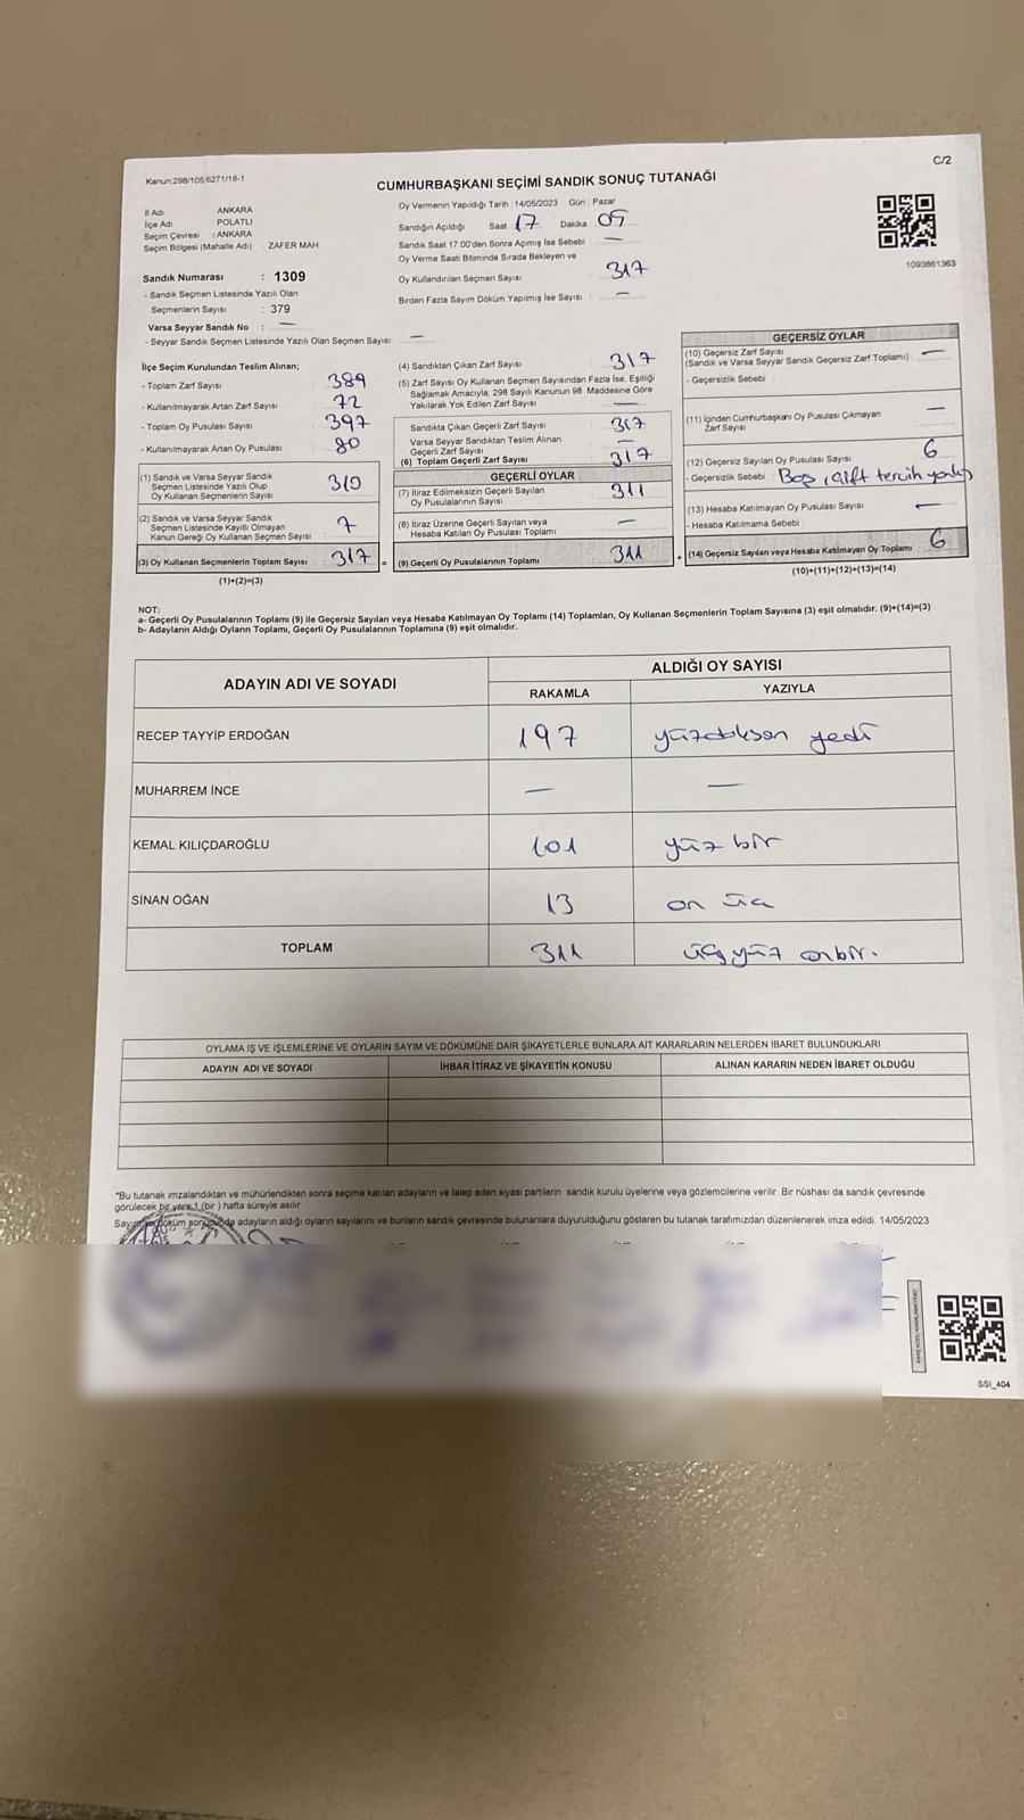 C/2
Kanun:298/105/6271/18-1
CUMHURBAŞKANI SEÇİMİ SANDIK SONUÇ TUTANAĞI
İl Adı ANKARA
İlçe Adı POLATLI
Seçim Çevresi : ANKARA
Seçim Bölgesi (Mahalle Adı) ZAFER MAH
Sandık Numarası : 1309
- Sandık Seçmen Listesinde Yazılı Olan
Seçmenlerin Sayısı : 379
Varsa Seyyar Sandık No : —
- Seyyar Sandık Seçmen Listesinde Yazılı Olan Seçmen Sayısı —
Oy Vermenin Yapıldığı Tarih : 14/05/2023 Gün : Pazar
Sandığın Açıldığı Saat 17 Dakika 05
Sandık Saat 17:00'den Sonra Açılmış İse Sebebi —
Oy Verme Saati Bitiminde Sırada Bekleyen ve
Oy Kullandırılan Seçmen Sayısı 317
Birden Fazla Sayım Döküm Yapılmış İse Sayısı —
1093861363
İlçe Seçim Kurulundan Teslim Alınan;
- Toplam Zarf Sayısı 389
- Kullanılmayarak Artan Zarf Sayısı 72
- Toplam Oy Pusulası Sayısı 397
- Kullanılmayarak Artan Oy Pusulası 80
(1) Sandık ve Varsa Seyyar Sandık
Seçmen Listesinde Yazılı Olup
Oy Kullanan Seçmenlerin Sayısı 310
(2) Sandık ve Varsa Seyyar Sandık
Seçmen Listesinde Kayıtlı Olmayan
Kanun Gereği Oy Kullanan Seçmen Sayısı 7
(3) Oy Kullanan Seçmenlerin Toplam Sayısı 317
(1)+(2)=(3)
(4) Sandıktan Çıkan Zarf Sayısı 317
(5) Zarf Sayısı Oy Kullanan Seçmen Sayısından Fazla İse, Eşitliği
Sağlamak Amacıyla, 298 Sayılı Kanunun 98. Maddesine Göre
Yakılarak Yok Edilen Zarf Sayısı —
Sandıkta Çıkan Geçerli Zarf Sayısı 317
Varsa Seyyar Sandıktan Teslim Alınan
Geçerli Zarf Sayısı —
(6) Toplam Geçerli Zarf Sayısı 317
GEÇERLİ OYLAR
(7) İtiraz Edilmeksizin Geçerli Sayılan
Oy Pusulalarının Sayısı 311
(8) İtiraz Üzerine Geçerli Sayılan veya
Hesaba Katılan Oy Pusulası Toplamı —
= (9) Geçerli Oy Pusulalarının Toplamı 311
GEÇERSİZ OYLAR
(10) Geçersiz Zarf Sayısı
(Sandık ve Varsa Seyyar Sandık Geçersiz Zarf Toplamı) —
- Geçersizlik Sebebi
(11) İçinden Cumhurbaşkanı Oy Pusulası Çıkmayan
Zarf Sayısı —
(12) Geçersiz Sayılan Oy Pusulası Sayısı 6
- Geçersizlik Sebebi Boş, çift tercih
(13) Hesaba Katılmayan Oy Pusulası Sayısı —
- Hesaba Katılmama Sebebi
+ (14) Geçersiz Sayılan veya Hesaba Katılmayan Oy Toplamı 6
(10)+(11)+(12)+(13)=(14)
NOT:
a- Geçerli Oy Pusulalarının Toplamı (9) ile Geçersiz Sayılan veya Hesaba Katılmayan Oy Toplamı (14) Toplamları, Oy Kullanan Seçmenlerin Toplam Sayısına (3) eşit olmalıdır. (9)+(14)=(3)
b- Adayların Aldığı Oyların Toplamı, Geçerli Oy Pusulalarının Toplamına (9) eşit olmalıdır.
ADAYIN ADI VE SOYADI
ALDIĞI OY SAYISI
RAKAMLA YAZIYLA
RECEP TAYYİP ERDOĞAN 197 yüzdoksan yedi
MUHARREM İNCE — —
KEMAL KILIÇDAROĞLU 101 yüz bir
SİNAN OĞAN 13 on üç
TOPLAM 311 üçyüz onbir.
OYLAMA İŞ VE İŞLEMLERİNE VE OYLARIN SAYIM VE DÖKÜMÜNE DAİR ŞİKAYETLERLE BUNLARA AİT KARARLARIN NELERDEN İBARET BULUNDUKLARI
ADAYIN ADI VE SOYADI İHBAR İTİRAZ VE ŞİKAYETİN KONUSU ALINAN KARARIN NEDEN İBARET OLDUĞU
*Bu tutanak imzalandıktan ve mühürlendikten sonra seçime katılan adayların ve talep eden siyasi partilerin sandık kurulu üyelerine veya gözlemcilerine verilir. Bir nüshası da sandık çevresinde
görülecek bir yere 1 (bir) hafta süreyle asılır
Sayım döküm sonucunda adayların aldığı oyların sayılarını ve bunların sandık çevresinde bulunanlara duyurulduğunu gösteren bu tutanak tarafımızdan düzenlenerek imza edildi. 14/05/2023
SSI_404